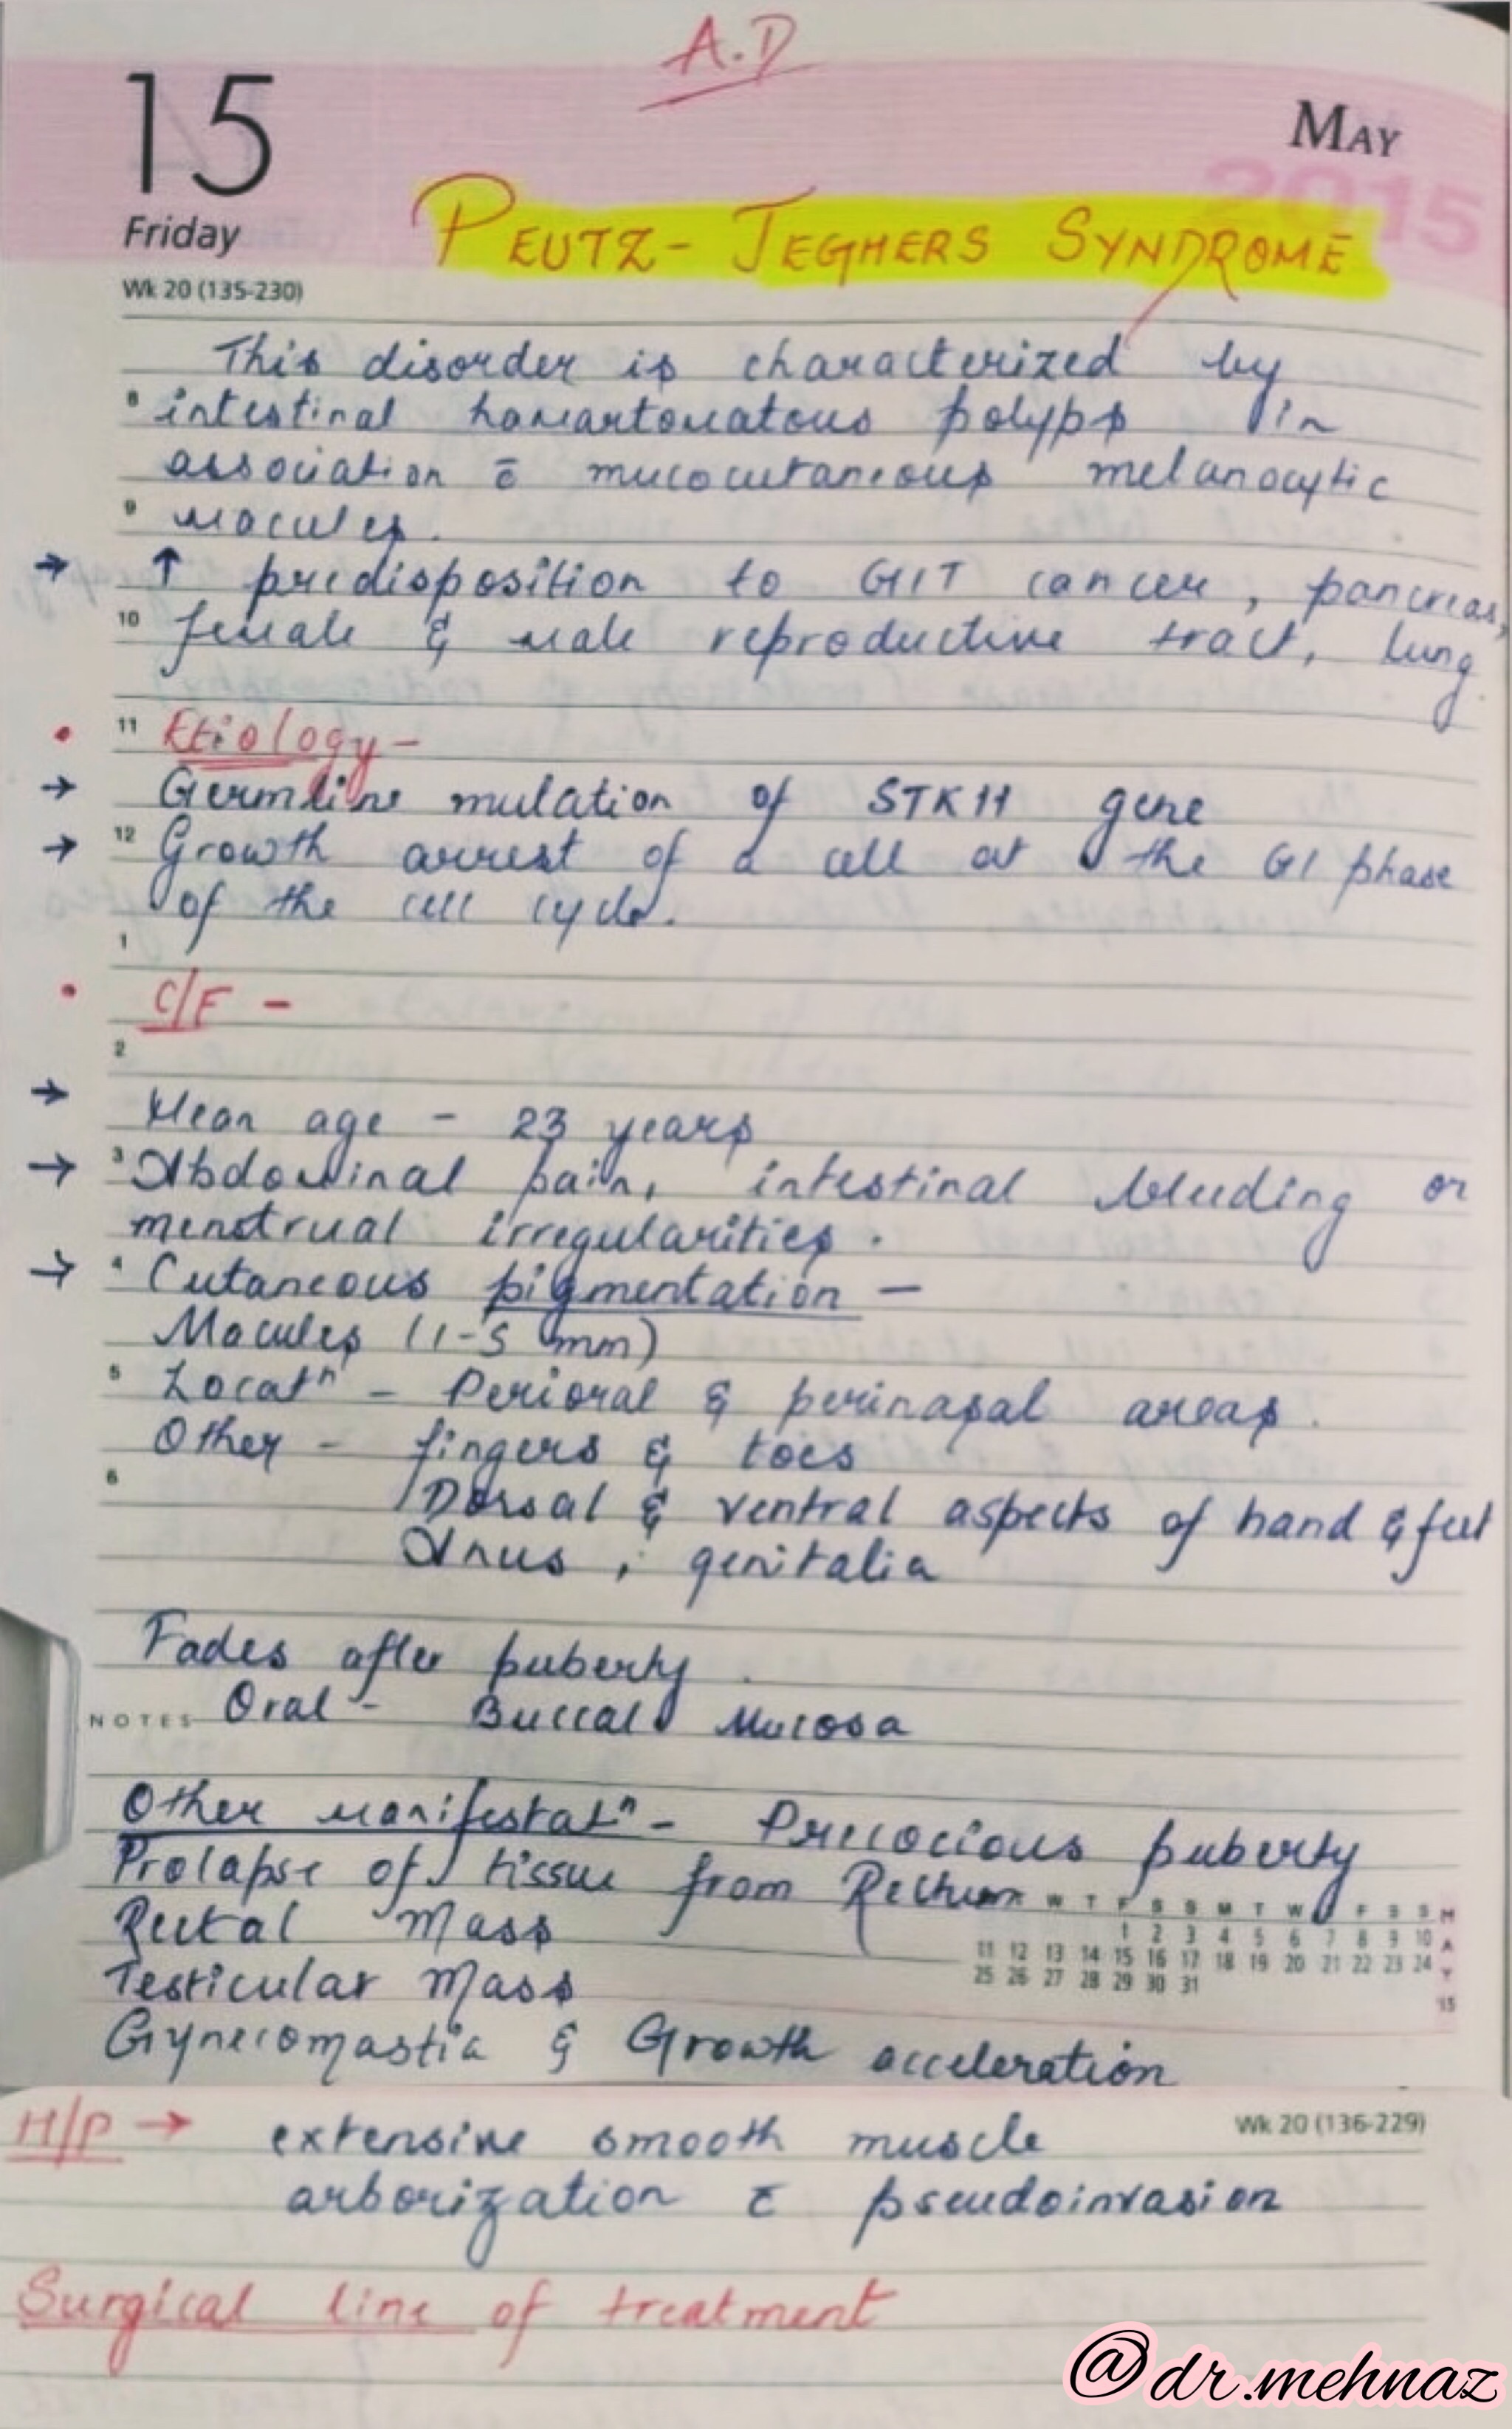 A.D
15
MAY
2015
Friday
PEUTZ-JEGHERS SYNDROME
Wk 20 (135-230)
This disorder is characterized by
8 intestinal hamartomatous polyps in
association c̄ mucocutaneous melanocytic
9 macules.
→ ↑ predisposition to GIT cancer, pancreas,
10 female & male reproductive tract, lung
• 11 Etiology -
→ Germline mutation of STK11 gene
→ 12 Growth arrest of a cell at the G1 phase
of the cell cycle.
1
• C/F -
2
→ Mean age - 23 years
→ 3 Abdominal pain, intestinal bleeding or
menstrual irregularities.
→ 4 Cutaneous pigmentation -
Macules (1-5 mm)
5 Locatⁿ - Perioral & perinasal areas.
Other - fingers & toes
6
Dorsal & ventral aspects of hand & feet
Anus, genitalia
Fades after puberty.
NOTES Oral - Buccal Mucosa
Other manifestatⁿ - Precocious puberty
Prolapse of tissue from Rectum
W T F S S M T W F S S M
Rectal Mass
1 2 3 4 5 6 7 8 9 10 A
11 12 13 14 15 16 17 18 19 20 21 22 23 24 Y
Testicular Mass
25 26 27 28 29 30 31
15
Gynecomastia & Growth acceleration
Wk 20 (136-229)
H/P → extensive smooth muscle
arborization c̄ pseudoinvasion
Surgical line of treatment
@dr.mehnaz